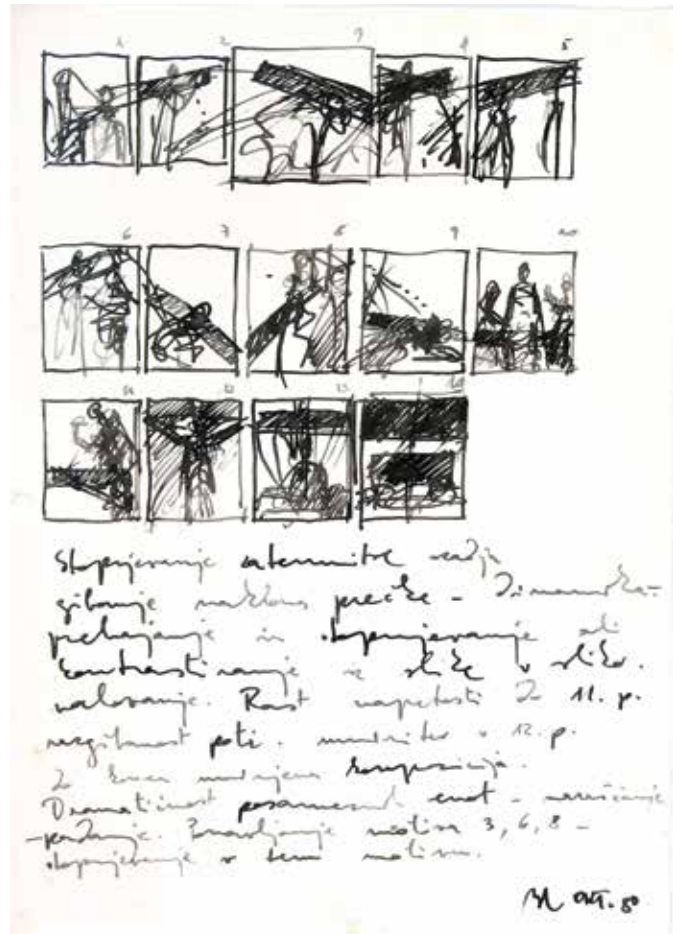 1 2 3 4 5
6 7 8 9 10
11 12 13 14
Stopnjevanje zatemnitve
gibanje naklona prečke - Dinamika -
prehajanje in stopnjevanje ali
kontrastiranje iz slike v sliko.
valovanje. Rast napetosti do 11. p.
razgibanost poti. umiritev v 12. p.
Za konec umirjena kompozicija.
Dramatičnost posameznih enot - naraščanje
- padanje. Ponavljanje motiva 3, 6, 8 -
stopnjevanje v tem motivu.